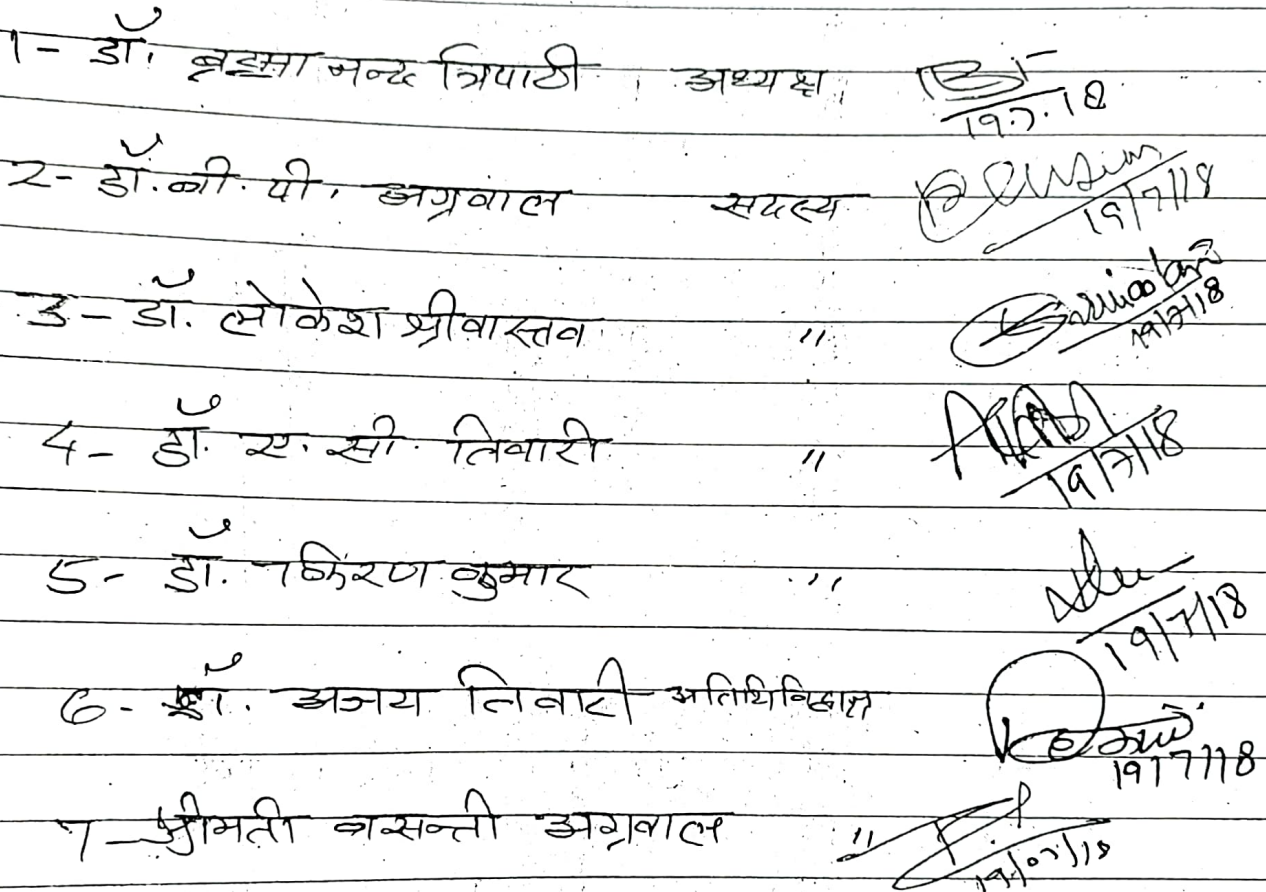 1- डॉ. ब्रह्मा नन्द त्रिपाठी अध्यक्ष 19.7.18
2- डॉ. बी. पी. अग्रवाल सदस्य 19/7/18
3- डॉ. लोकेश श्रीवास्तव " 19/7/18
4- डॉ. ए. सी. तिवारी " 19/7/18
5- डॉ. किरण कुमार " 19/7/18
6- डॉ. अजय तिवारी अतिथि विद्वान 19/7/18
7- श्रीमती बासन्ती अग्रवाल " 19/07/18